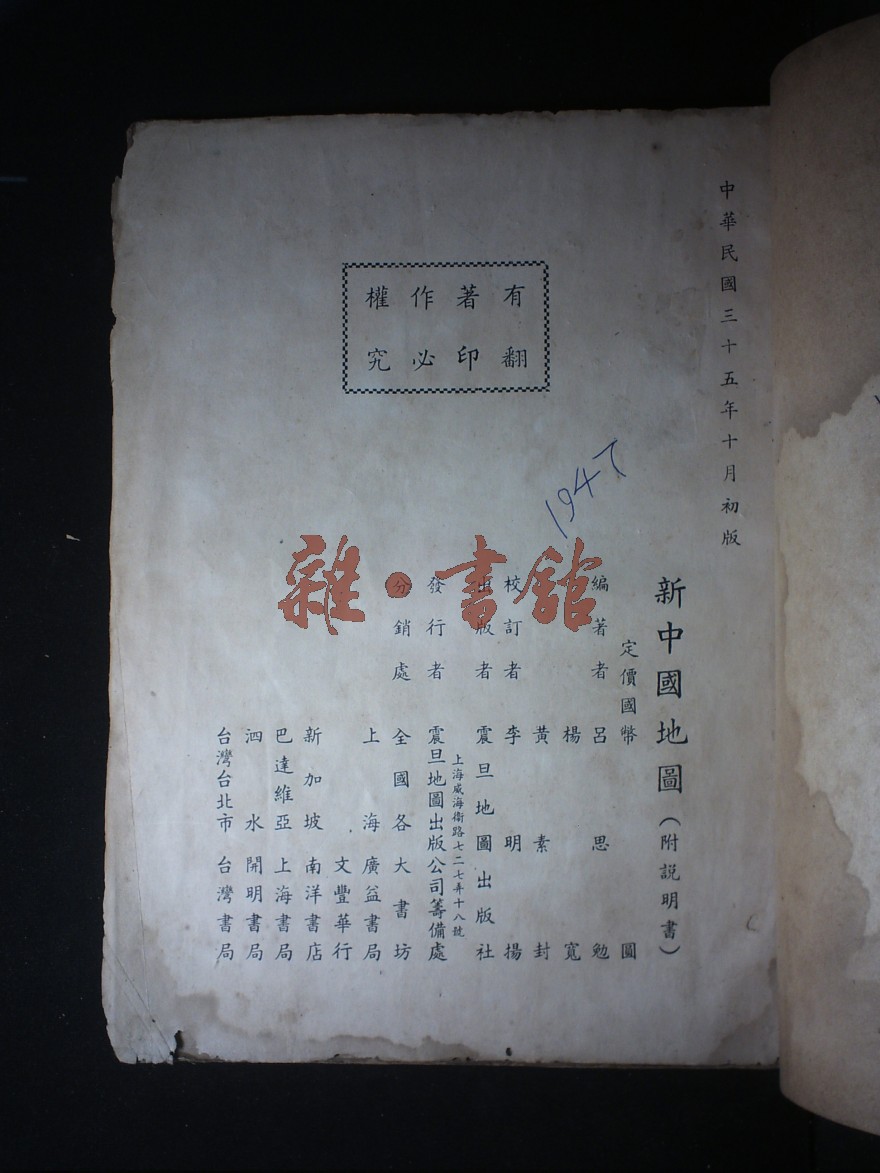 中華民國三十五年十月初版
有著作權
翻印必究
1947
新中國地圖（附説明書）
定價國幣 圓
編著者 呂思勉
楊寬
黃素封
校訂者 李明揚
出版者 震旦地圖出版社
上海威海衛路七二七弄十八號
發行者 震旦地圖出版公司籌備處
分銷處 全國各大書坊
上海 廣益書局
文豐華行
新加坡 南洋書店
巴達維亞 上海書局
泗水 開明書局
台灣台北市 台灣書局
雜·書館